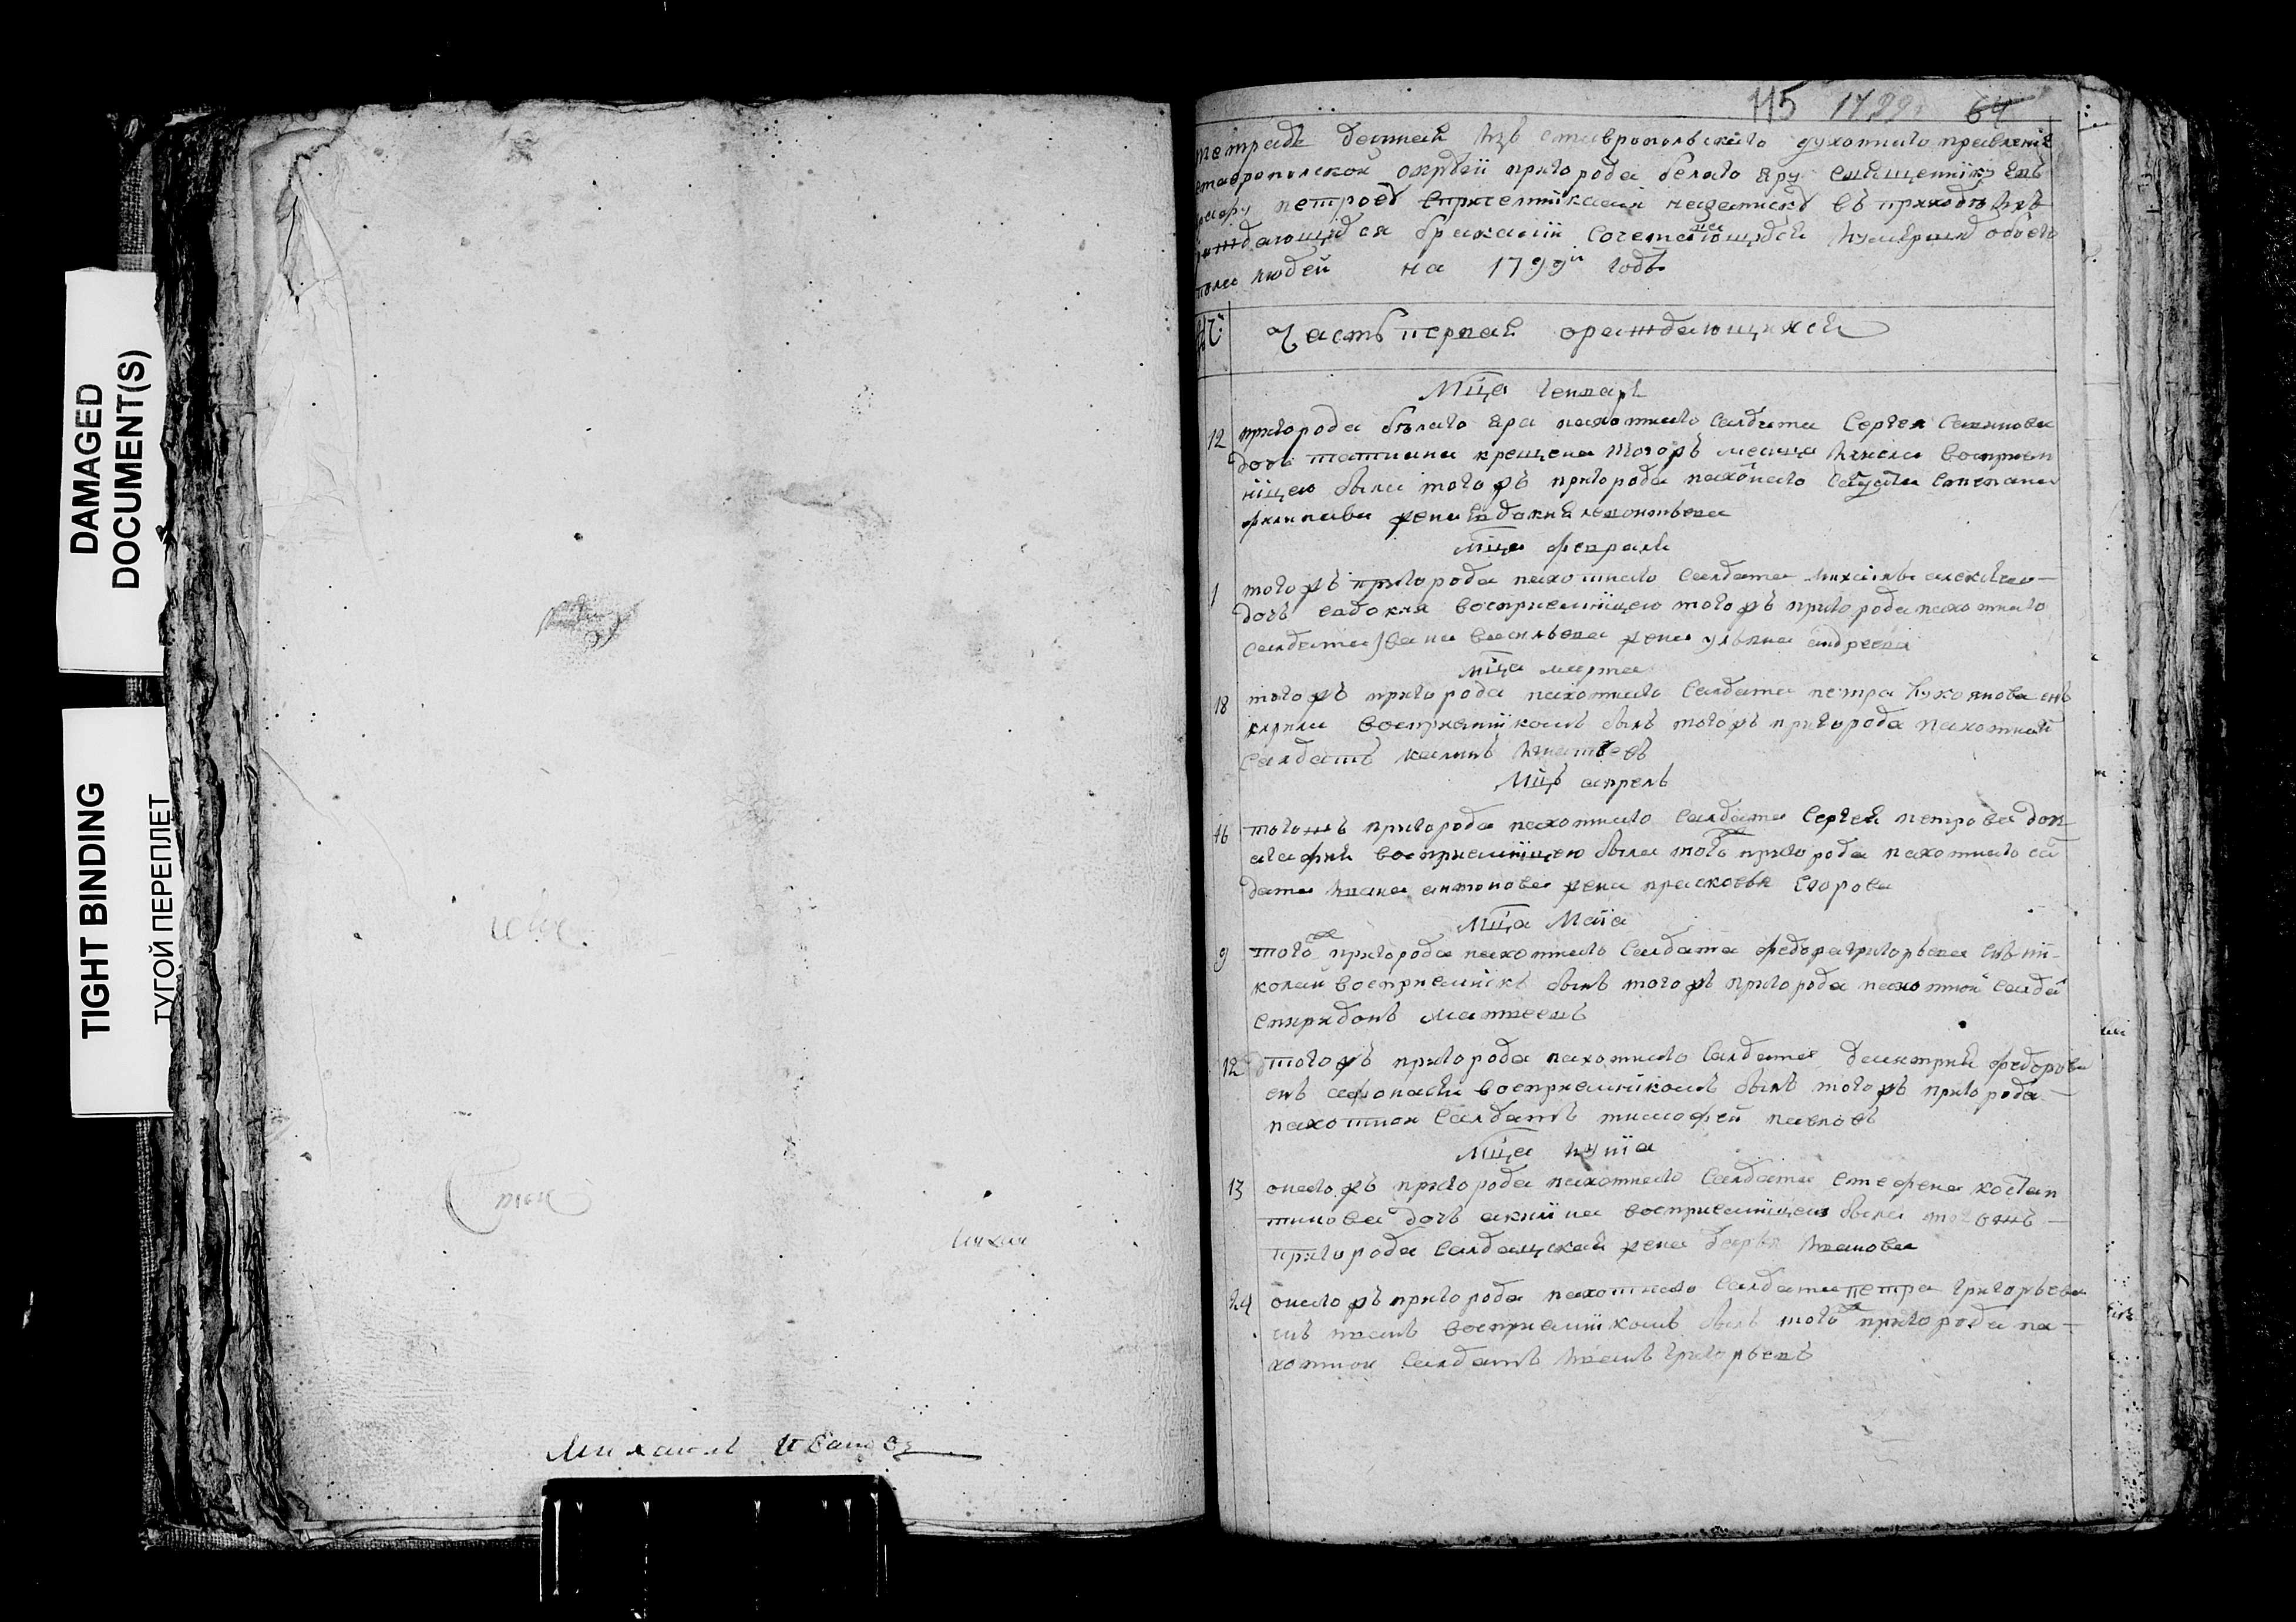 DAMAGED
DOCUMENT(S)
TIGHT BINDING
ТУГОЙ ПЕРЕПЛЕТ
Михаилъ Иванов
115 1799 64
тетрадь данная изъ ставропольскаго духовнаго правленїя
ставропольской округи пригорода белаго яру священнику
петрову спричетниками въ приходѣ ихъ
раждающихся бракамъ сочетающихся иумершихъ обоего
пола людей на 1799й годъ
Часть перваяораждающихся
Мца генваря
12 пригорода бѣлаго яра пахотнаго салдата Сергея
дочь татиана крещена тогожъ месяца восприем
нїцею была тогожъ пригорода пахотнаго салдата степана
филипава жена евдокия леонтьева
мца февраля
1 тогожъ пригорода пахотнаго салдата михаила алексѣева
дочь евдокия восприемнїцею тогожъ пригорода пахотнаго
салдата Ивана васильева жена ульяна андреева
мца марта
18 тогожъ пригорода пахотнаго салдата петра лукоянова снъ
кирила восприемнїкомъ былъ тогожъ пригорода пахотнай
салдатъ калинъ игнатьевъ
Мцъ апрель
16 тогожъ пригорода пахотнаго салдата Сергея петрова доч
агафия восприемнїцею была тогожъ пригорода пахотнаго сал
дата ивана антонова жена прасковья егорова
Мца Маїа
9 тогожъ пригорода пахотнаго салдата федора григорьева снъ нї-
колаи восприемнїкъ былъ тогожъ пригорода пахотной салда
спиридонъ матвеевъ
12 тогожъ пригорода пахотнаго салдата димитрия федорова
снъ афонасеи восприемнїкомъ былъ тогожъ пригорода
пахотнои салдатъ тимофей павловъ
Мца иунїа
13 онагожъ пригорода пахотнаго салдата стефана костан
тинова дочь акилїна восприемнїцею была тогожъ
пригорода салдацкая жена дарья иванова
24 онагожъ пригорода пахотнаго салдата петра григорьева
снъ иванъ восприемнїкомъ былъ тогожъ пригорода па-
хотнои салдатъ иванъ григорьевъ